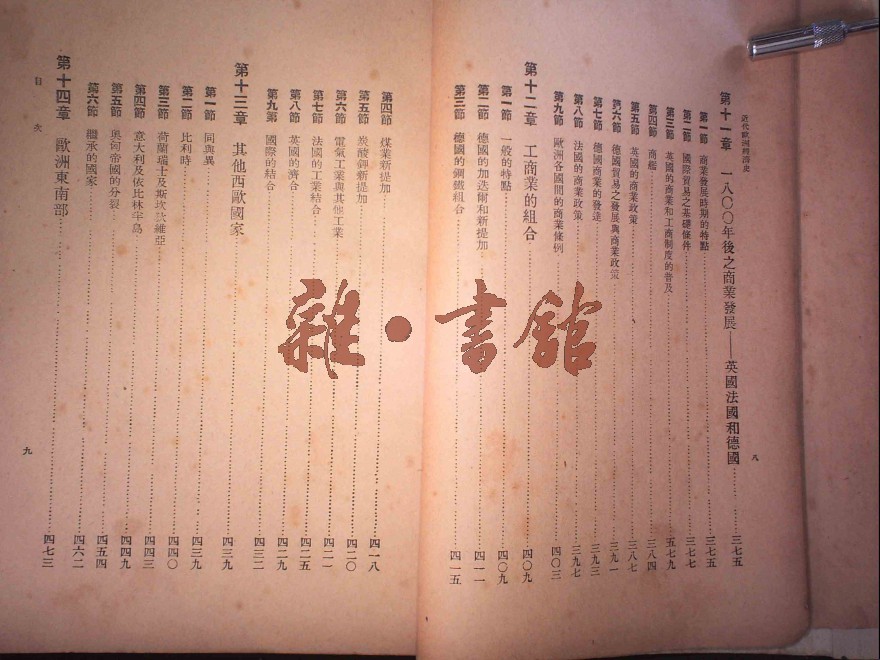 近代歐洲經濟史
第十一章 一八〇〇年後之商業發展——英國法國和德國 三七五
第一節 商業發展時期的特點 三七五
第二節 國際貿易之基礎條件 三七七
第三節 英國的商業和工商制度的普及 五七九
第四節 商艦 三八四
第五節 英國的商業政策 三八七
第六節 德國貿易之發展與商業政策 三九一
第七節 德國商業的發達 三九三
第八節 法國的商業政策 三九七
第九節 歐洲各國間的商業條例 四〇三
第十二章 工商業的組合 四〇九
第一節 一般的特點 四〇九
第二節 德國的加迭爾和新提加 四一一
第三節 德國的鋼鐵組合 四一五
八
第四節 煤業新提加 四一八
第五節 炭酸鉀新提加 四二〇
第六節 電氣工業與其他工業 四二一
第七節 法國的工業結合 四二五
第八節 英國的濟合 四二九
第九第 國際的結合 四三二
第十三章 其他西歐國家 四三九
第一節 同與異 四三九
第二節 比利時 四四〇
第三節 荷蘭瑞士及斯坎狄維亞 四四三
第四節 意大利及依比林半島 四四九
第五節 奧匈帝國的分裂 四五四
第六節 繼承的國家 四六二
第十四章 歐洲東南部 四七三
目次
九
雜·書館